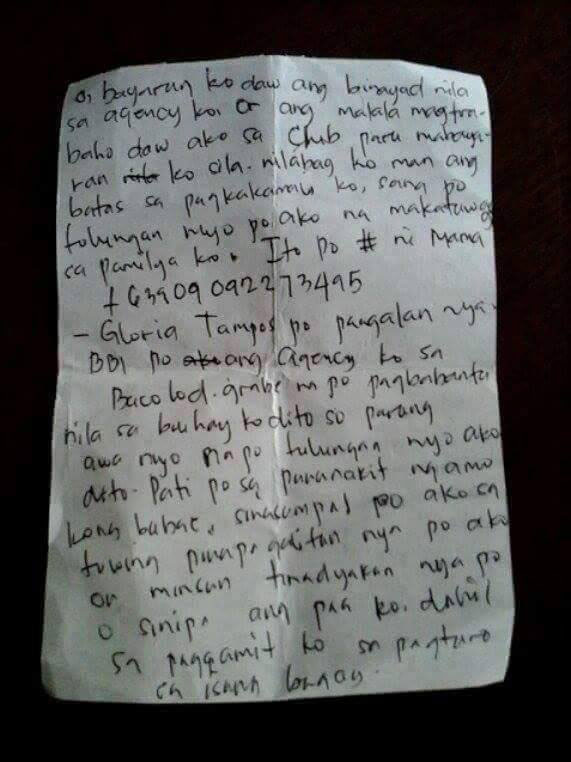 o, bayarun ko daw ang binayad nila
sa agency ko. Or ang malala magtra-
baho daw ako sa Club para mabaya-
ran ko sila. nilabag ko man ang
batas sa pagkakamali ko, sana po
tulungan nyo po ako na makatawag
sa pamilya ko. Ito po # ni Mama
+63909092273495
- Gloria Tampos po pangalan nya.
BBI po ang Agency ko sa
Bacolod. grabe na po pagbabanta
nila sa buhay ko dito so parang
awa nyo na po tulungan nyo ako
dito. Pati po sa pananakit ng amo
kong babae, sinasampal po ako sa
tuwing pinapagalitan nya po ako
or minsan tinadyakan nya po
o sinipa ang paa ko. dahil
sa paggamit ko sa pagturo
sa isang bagay.